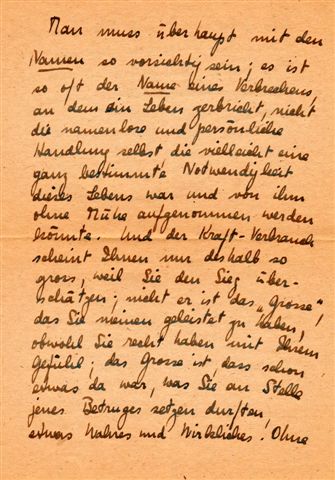 Man muss überhaupt mit den
Namen so vorsichtig sein; es ist
so oft der Name eines Verbrechens,
an dem ein Leben zerbricht, nicht
die namenlose und persönliche
Handlung selbst, die vielleicht eine
ganz bestimmte Notwendigkeit
dieses Lebens war und von ihm
ohne Mühe aufgenommen werden
könnte. Und der Kraft-Verbrauch
scheint Ihnen nur deshalb so
gross, weil Sie den Sieg über-
schätzen; nicht er ist das "Grosse",
das Sie meinen geleistet zu haben,
obwohl Sie recht haben mit Ihrem
Gefühl; das Grosse ist, dass schon
etwas da war, was Sie an Stelle
jenes Betruges setzen durften,
etwas Wahres und Wirkliches. Ohne